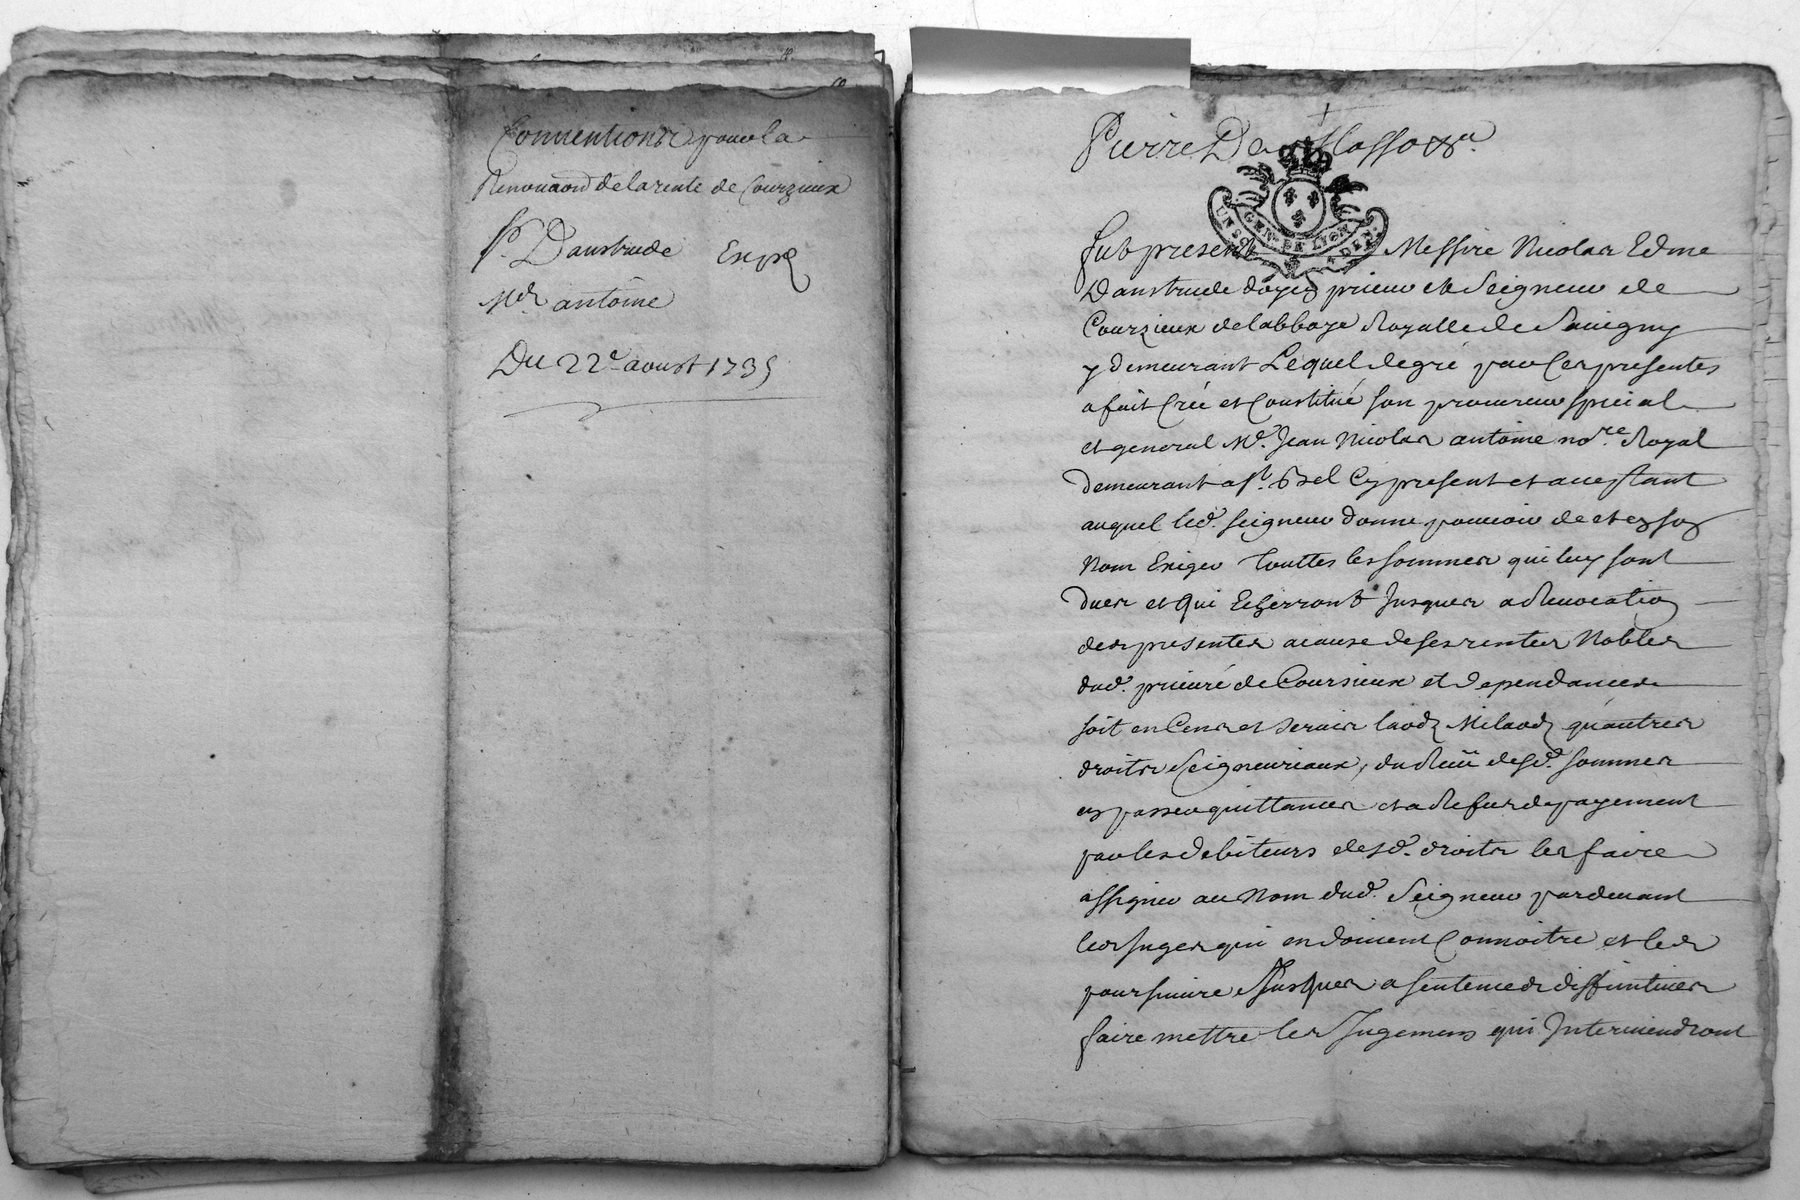 Conventions pour la
Renovaõn de la rente de Courzieux
Sr. Daustrude Exped
Me. antoine
Du 22e. aoust 1735
Pierre De
UN SOL
GEN. DE LYON
Sut present Messire Nicolas Edme
Daustrude doyen prieur et Seigneur de
Courzieux de labbaye Royalle de Savigny
y demeurant Lequel de gré par Ces presentes
a fait Créé et Constitué son procureur special
et general Me. Jean Nicolas antoine nore. Royal
demeurant a st. Bel Cy present et acceptant
auquel led. seigneur donne pouvoir de et en son
Nom Exiger touttes les sommes qui luy sont
dues et qui Echerront Jusques a Revocation
des presentes a cause de ses rentes Nobles
dud. prieuré de Coursieux et dependances
soit en Cens et servis laodz Milaodz qu'autres
droits Seigneuriaux, du Reçû desd. sommes
en passer quittances et a Refus de payement
par les debiteurs desd. droits les faire
assigner au Nom dud. Seigneur pardevant
les Juges qui en doivent Connoitre et les
poursuivre Jusques a sentences diffinitives
faire mettre les Jugemens qui Interviendront